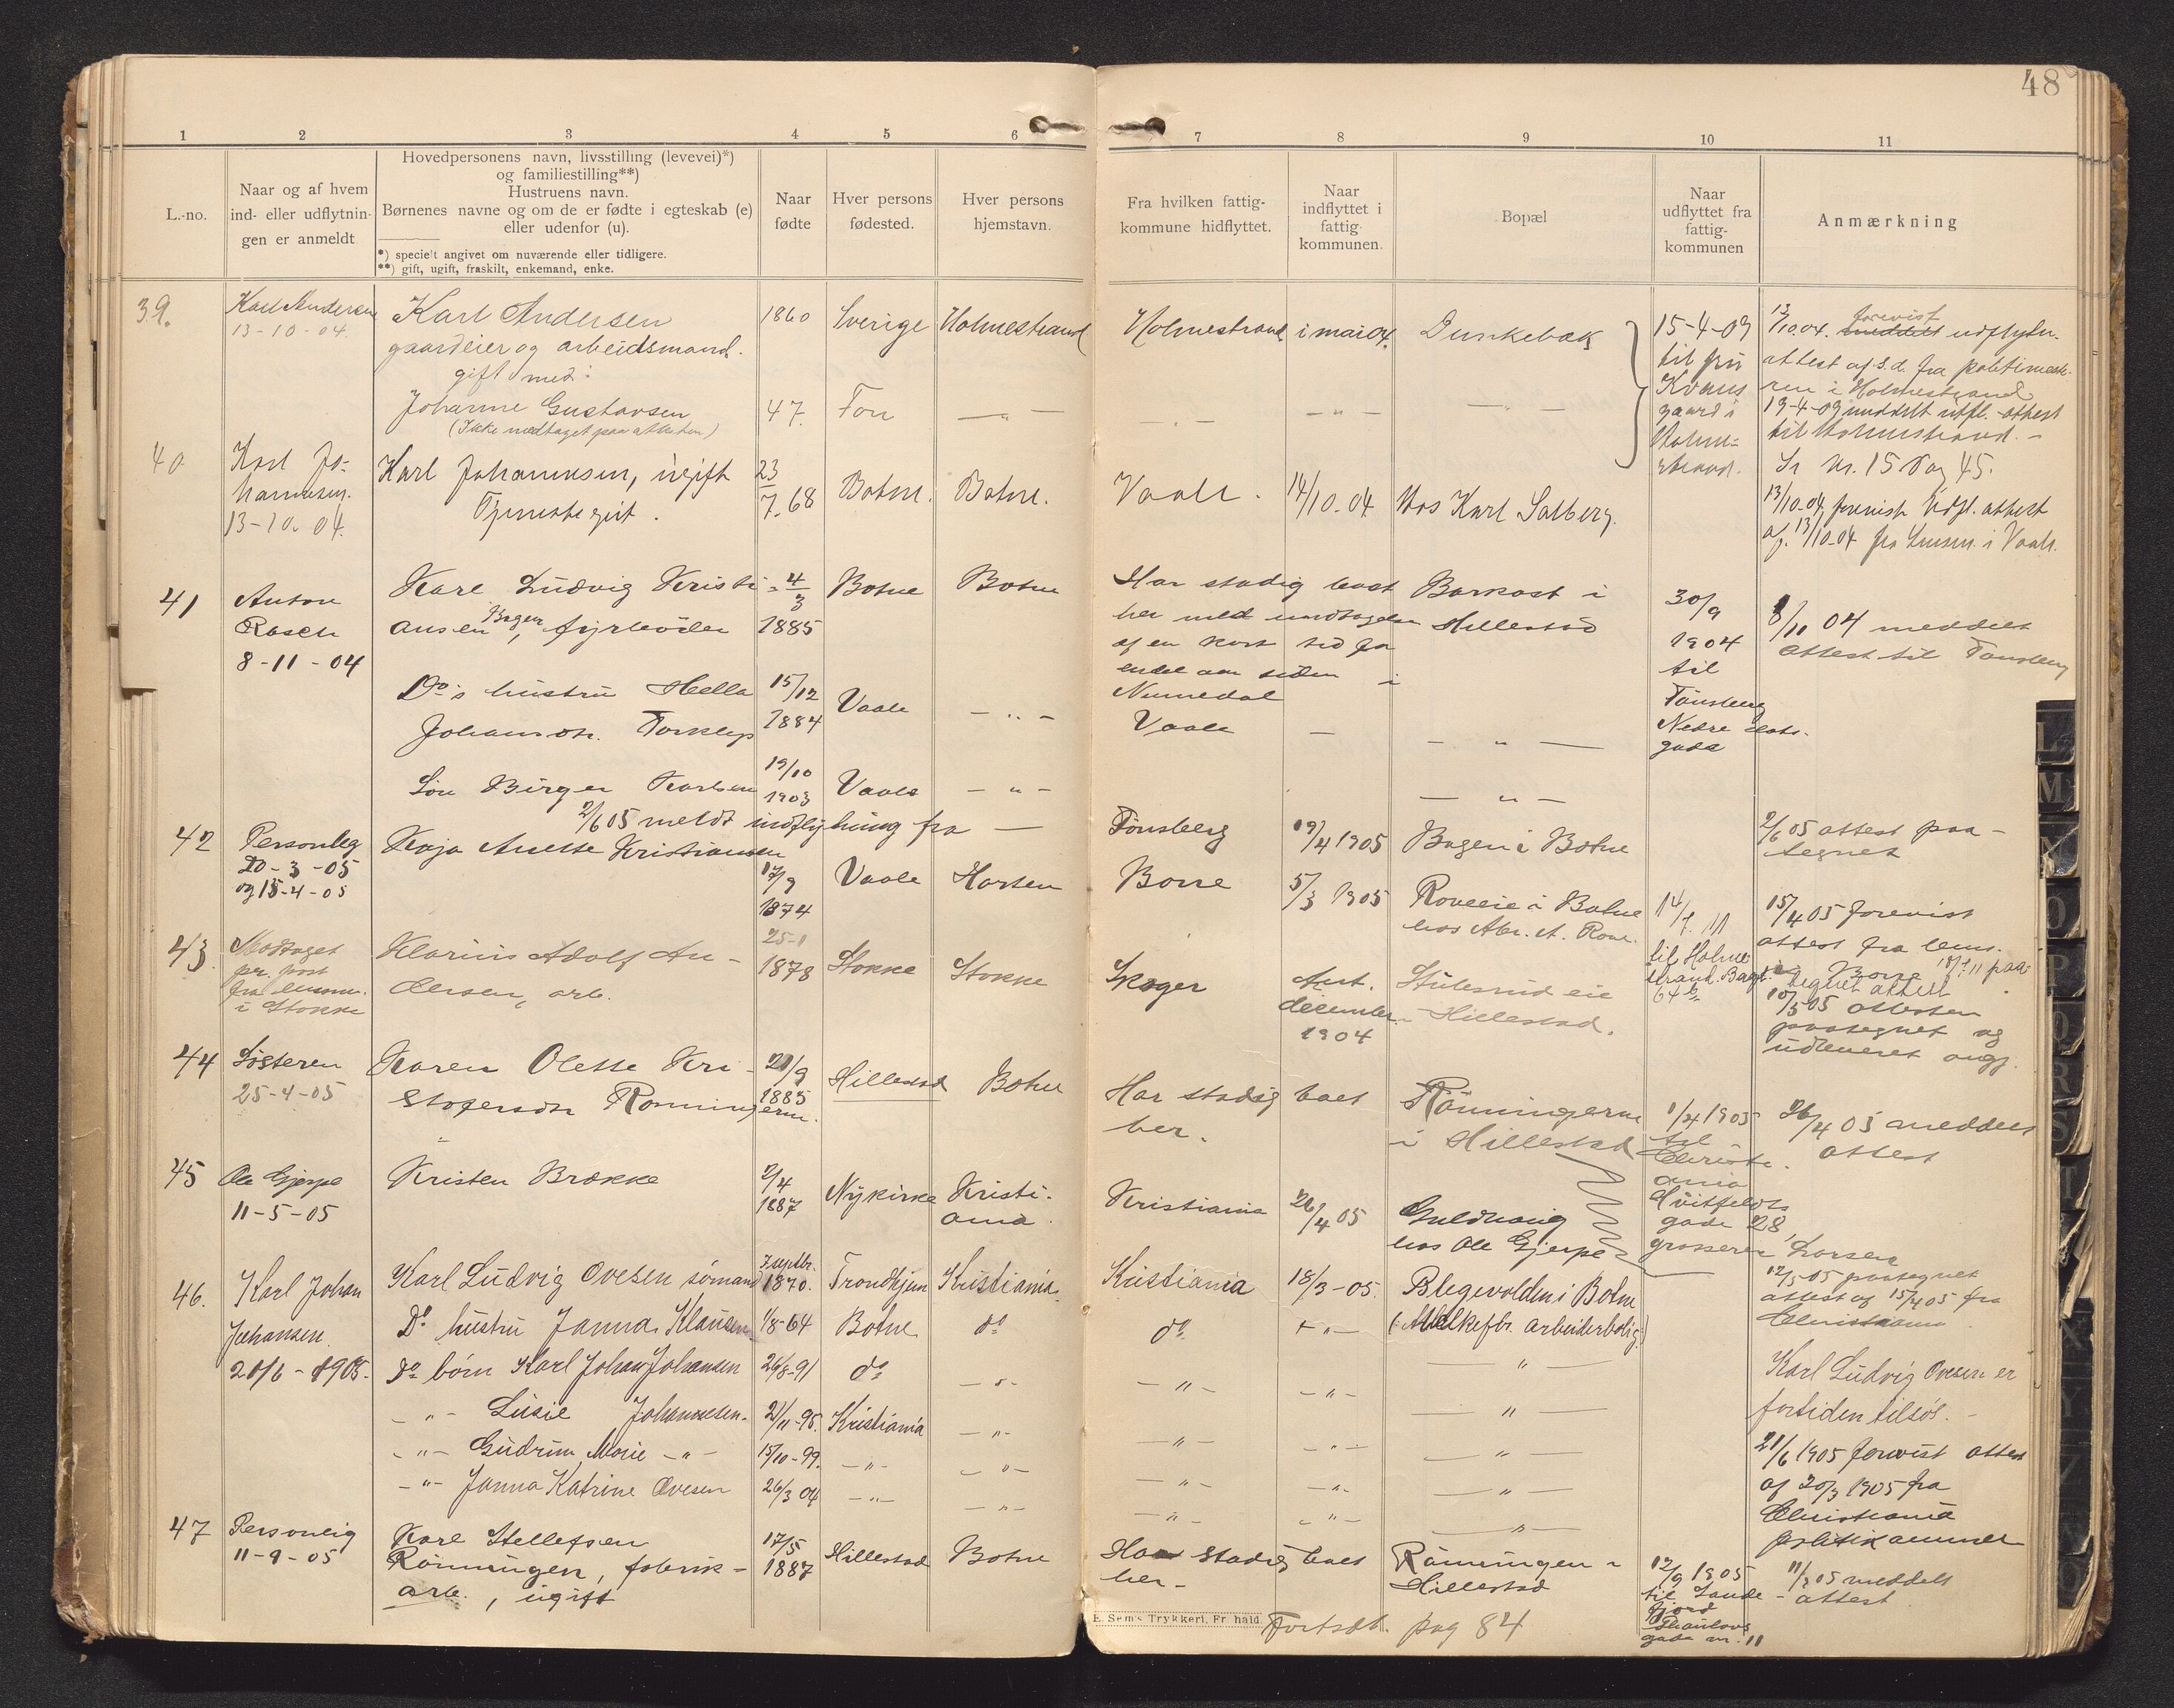 48
1 2 3 4 5 6 7 8 9 10 11
L.-no.
Naar og af hvem
ind- eller udflytnin-
gen er anmeldt
Hovedpersonens navn, livsstilling (levevei)*)
og familiestilling**)
Hustruens navn.
Børnenes navne og om de er fødte i egteskab (e)
eller udenfor (u).
*) specielt angivet om nuværende eller tidligere.
**) gift, ugift, fraskilt, enkemand, enke.
Naar
fødte
Hver persons
fødested.
Hver persons
hjemstavn.
Fra hvilken fattig-
kommune hidflyttet.
Naar
indflyttet i
fattig-
kommunen.
Bopæl
Naar
udflyttet fra
fattig-
kommunen
Anmærkning
39.
Karl Andersen
13-10-04.
Karl Andersen
gaardeier og arbeidsmand.
gift med:
Johanne Gustavsen
(Ikke medtaget paa attesten)
1860
47.
Sverige
Fon
Holmestrand
— " —
Holmestrand
— " —
i mai 04.
— " —
Dunkebæk
— " —
15-4-09
til
gaard i
Holme-
strand.
13/10 04. forevist
meddelt udflytn.
attest af s.d. fra politimeste-
ren i Holmestrand
19-4-09 meddelt utfl.-attest
til Holmestrand. —
Se Nr. 15 Pag 45.
40
Karl Jo-
hannesen.
13-10-04.
Karl Johannesen, ugift
Tjenestegut.
23
7. 68
Botne.
Botne.
Vaale.
14/10.04
Hos Karl Solberg.
13/10-04 forevist Udfl. attest
af. 13/10-04 fra Lensm. i Vaale.
41
Anton
Rasch
8-11-04
Karl Ludvig Kristi-
ansen Bagen, fyrbøder
Do's hustru Hella
Johansdtr. Torklep
Søn Birger Karlsen
4/3
1885
15/12
1884
19/10
1903
Botne
Vaale
Vaale
Botne
— " —
— " —
Har stadig boet
her med undtagelse
af en kort tid for
endel aar siden i
Numedal
Vaale
—
Barkost i
Hillestad
— " —
— " —
30/9
1904
til
Tønsberg
Nedre Slots-
gade
8/11 04 meddelt
attest til Tønsberg
2/6 05 meldt indflytning fra —
Tønsberg
19/4 1905
Bagen i Botne
2/6 05 attest paa-
tegnet
42
Personlig
20-3-05
og 15-4-05
Kaja Anette Kristiansen
17/9
1874
Vaale
Horten
Borre
5/3 1905
Roveeie i Botne
hos Abr. A. Rove.
14/7.11
til Holme-
strand. Bagt.
64 b
15/4 05 forevist
attest fra lens.
i Borre 18/7.11 paa-
tegnet attest
43.
Modtaget
pr. post
fra lensm.
i Stokke
Klarius Adolf An-
dersen, arb.
25-1
1878
Stokke
Stokke
Skoger
Aust.
december
1904
Stulesrud eie
Hillestad.
10/5 05 attesten
paategnet og
udleveret ang.
44
Søsteren
25-4-05
Karen Olette Kri-
stofersdtr Rønningerne.
21/9
1885
Hillestad
Botne
Har stadig boet
her.
Rønningerne
i Hillestad
1/4 1905
til
Christi-
ania
Hvitfeldts
gade 28,
grosserer Larsen
26/4 05 meddelt
attest
45
Ole Gjerpe
11-5-05
Kristen Brække
2/4
1887
Nykirke
Kristi-
ania.
Kristiania
26/4 05
Guldhaug
hos Ole Gjerpe
12/5 05 paategnet
attest af 15/4 05 fra
Christiania
46.
Karl Johan
Johansen.
20/6-1905.
Karl Ludvig Ovesen sømand
Do hustru Janna Klausen
Do børn Karl Johan Johansen
— " — Lusie Johannesen.
— " — Gudrun Marie — " —
— " — Janna Katrine Ovesen
7 septbr.
1870.
1/8-64
26/8-91
21/11-95.
15/10-99.
26/3 04
Trondhjem
Botne
do
Kristiania
— " —
— " —
Kristiania.
do
— " —
— " —
— " —
— " —
Kristiania
do
— " —
— " —
— " —
— " —
18/3-05.
— " —
— " —
— " —
— " —
— " —
Blegevolden i Botne
(Melkefbr. arbeiderbolig.)
— " —
— " —
— " —
— " —
— " —
Karl Ludvig Ovesen er
fortiden tilsøs. —
21/6 1905 forevist attest
af 20/3 1905 fra
Christiania
politikammer
47
Personlig
11-9-05
Karl Stellefsen
Rønningen, fabrik-
arb., ugift
17/5
1887
Hillestad
Botne
Har stadig boet
her —
Rønningen i
Hillestad
12/9 1905
til Sande-
fjord
gade nr. 11
11/9 05 meddelt
attest
E. Sem's Trykkeri, Fr.hald.
Fortsdt. pag 84
L
M
O
P
Q
R
S
X
Y